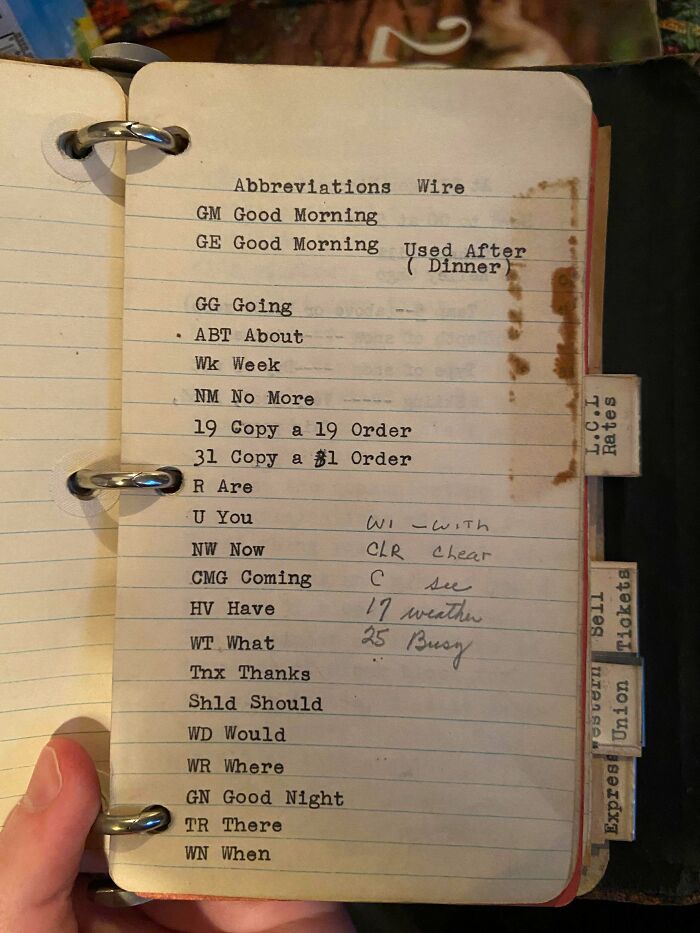 Abbreviations Wire
GM Good Morning
GE Good Morning Used After
( Dinner)
GG Going
ABT About
Wk Week
NM No More
19 Copy a 19 Order
31 Copy a 31 Order
R Are
U You
WI - WITH
NW Now
CLR Clear
CMG Coming
C see
HV Have
17 weather
WT What
25 Busy
Tnx Thanks
Shld Should
WD Would
WR Where
GN Good Night
TR There
WN When
L.C.L
Rates
Sell
Tickets
estern
Union
Express
2